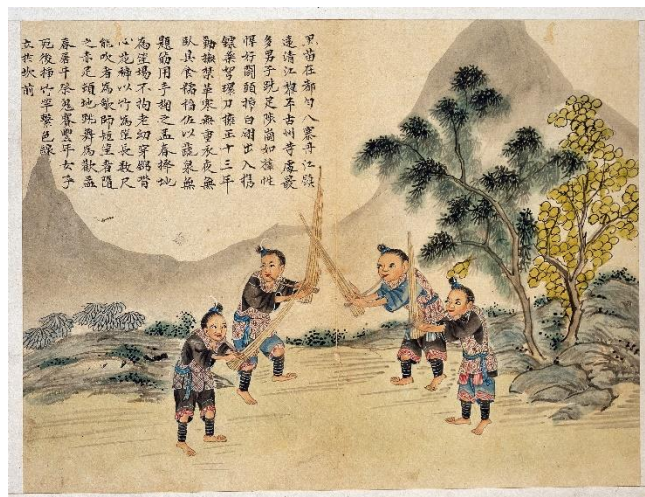 黑苗在都勻八寨丹江鎮
遠清江黎平古州等處最
多男子跣足陟崗如猿性
悍好鬭頭揷白翎出入携
鏢藥弩環刀雍正十三年
勦撫禁革寒無重衣夜無
臥具食糯稻佐以蔬無
匙筯用手掬之孟春擇地
為笙場不拘老幼穿錫背
心花補以竹為笙長數尺
能吹者為歌師短笙者隨
之赤足頓地跳舞為歡孟
春居平祭鬼豐年去子
死後揷竹竿繫色線
立於坟前